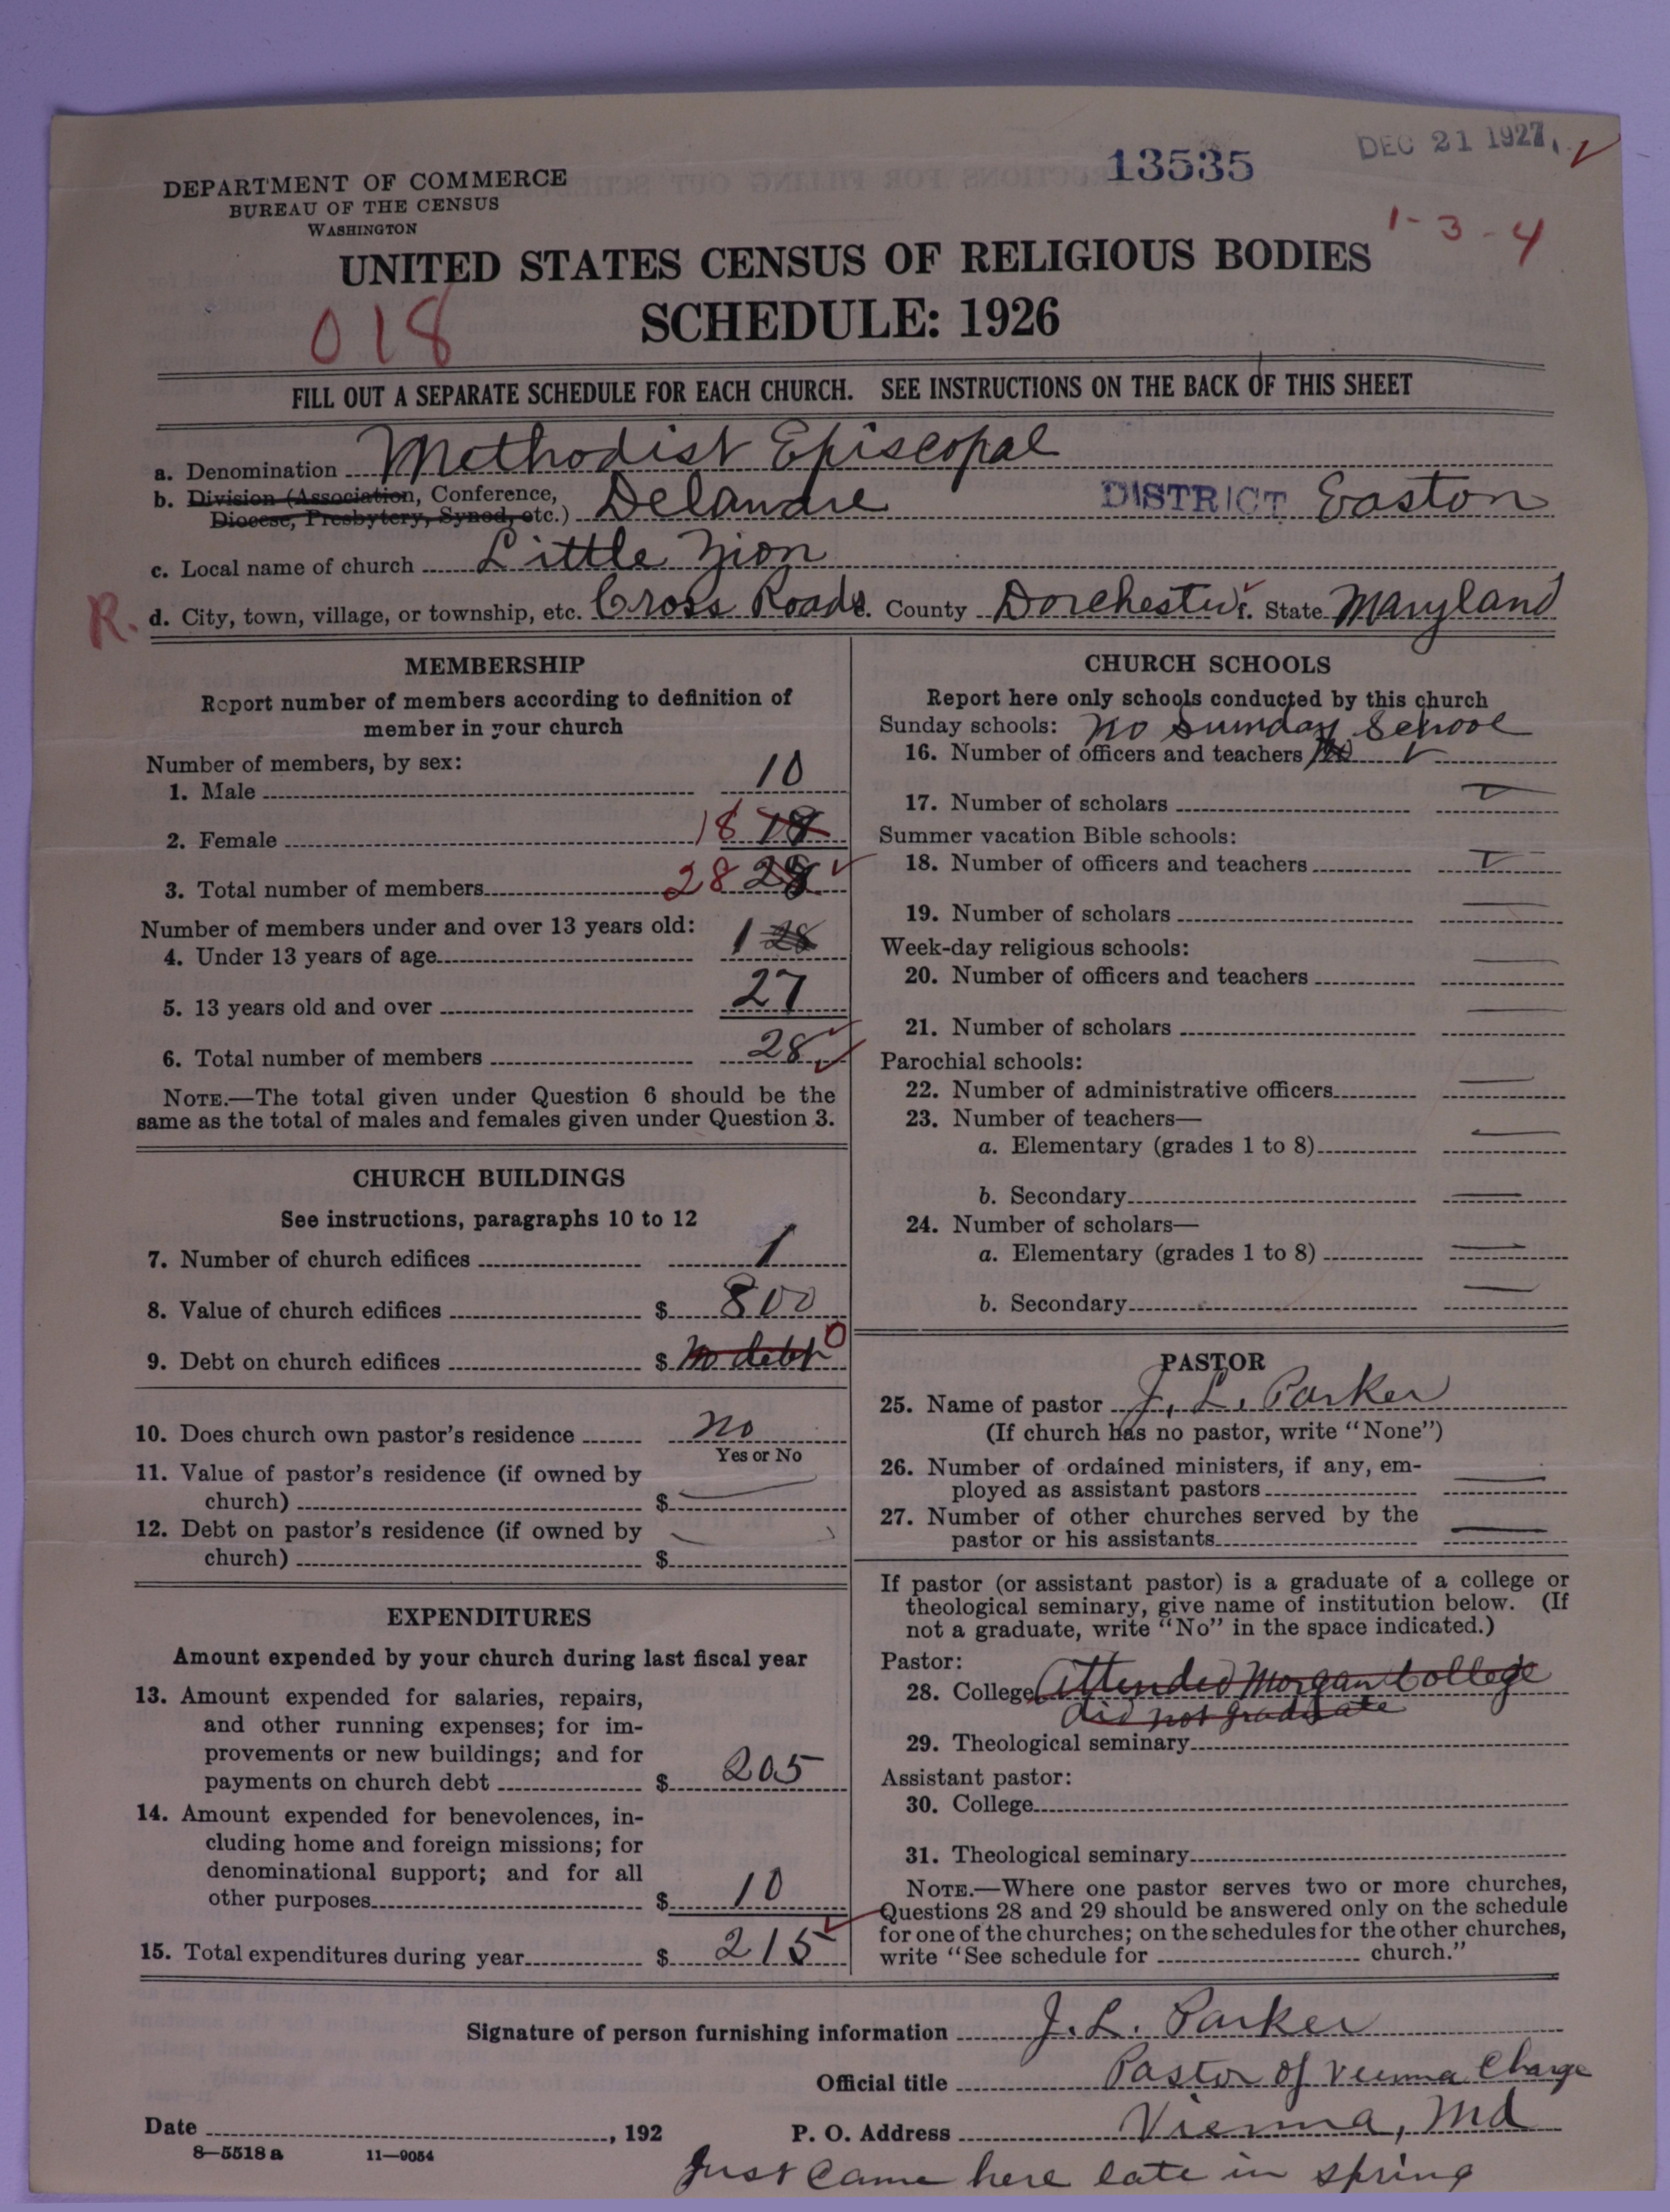 DEC 21 1927
13535
DEPARTMENT OF COMMERCE
BUREAU OF THE CENSUS
WASHINGTON
1-3-4
UNITED STATES CENSUS OF RELIGIOUS BODIES
SCHEDULE: 1926
018
FILL OUT A SEPARATE SCHEDULE FOR EACH CHURCH. SEE INSTRUCTIONS ON THE BACK OF THIS SHEET
a. Denomination Methodist Episcopal
b. Division (Association, Conference, Diocese, Presbytery, Synod, etc.) Delaware DISTRICT Easton
c. Local name of church Little Zion
R. d. City, town, village, or township, etc. Cross Roads e. County Dorchester f. State Maryland
MEMBERSHIP
Report number of members according to definition of
member in your church
Number of members, by sex:
1. Male 10
2. Female 18 18
3. Total number of members 28 28
Number of members under and over 13 years old:
4. Under 13 years of age 1 28
5. 13 years old and over 27
6. Total number of members 28
NOTE.—The total given under Question 6 should be the
same as the total of males and females given under Question 3.
CHURCH BUILDINGS
See instructions, paragraphs 10 to 12
7. Number of church edifices 1
8. Value of church edifices $ 800
9. Debt on church edifices $ no debt 0
10. Does church own pastor's residence no
Yes or No
11. Value of pastor's residence (if owned by
church) $
12. Debt on pastor's residence (if owned by
church) $
EXPENDITURES
Amount expended by your church during last fiscal year
13. Amount expended for salaries, repairs,
and other running expenses; for im-
provements or new buildings; and for
payments on church debt $ 205
14. Amount expended for benevolences, in-
cluding home and foreign missions; for
denominational support; and for all
other purposes $ 10
15. Total expenditures during year $ 215
CHURCH SCHOOLS
Report here only schools conducted by this church
Sunday schools: no Sunday School
16. Number of officers and teachers
17. Number of scholars
Summer vacation Bible schools:
18. Number of officers and teachers
19. Number of scholars
Week-day religious schools:
20. Number of officers and teachers
21. Number of scholars
Parochial schools:
22. Number of administrative officers
23. Number of teachers—
a. Elementary (grades 1 to 8)
b. Secondary
24. Number of scholars—
a. Elementary (grades 1 to 8)
b. Secondary
PASTOR
25. Name of pastor J. L. Parker
(If church has no pastor, write "None")
26. Number of ordained ministers, if any, em-
ployed as assistant pastors
27. Number of other churches served by the
pastor or his assistants
If pastor (or assistant pastor) is a graduate of a college or
theological seminary, give name of institution below. (If
not a graduate, write "No" in the space indicated.)
Pastor:
28. College Attended Morgan College
did not graduate
29. Theological seminary
Assistant pastor:
30. College
31. Theological seminary
NOTE.—Where one pastor serves two or more churches,
Questions 28 and 29 should be answered only on the schedule
for one of the churches; on the schedules for the other churches,
write "See schedule for church."
Signature of person furnishing information J. L. Parker
Official title Pastor of Vienna Charge
Date , 192 P. O. Address Vienna, Md
8—5518 a 11—9054
Just came here late in spring